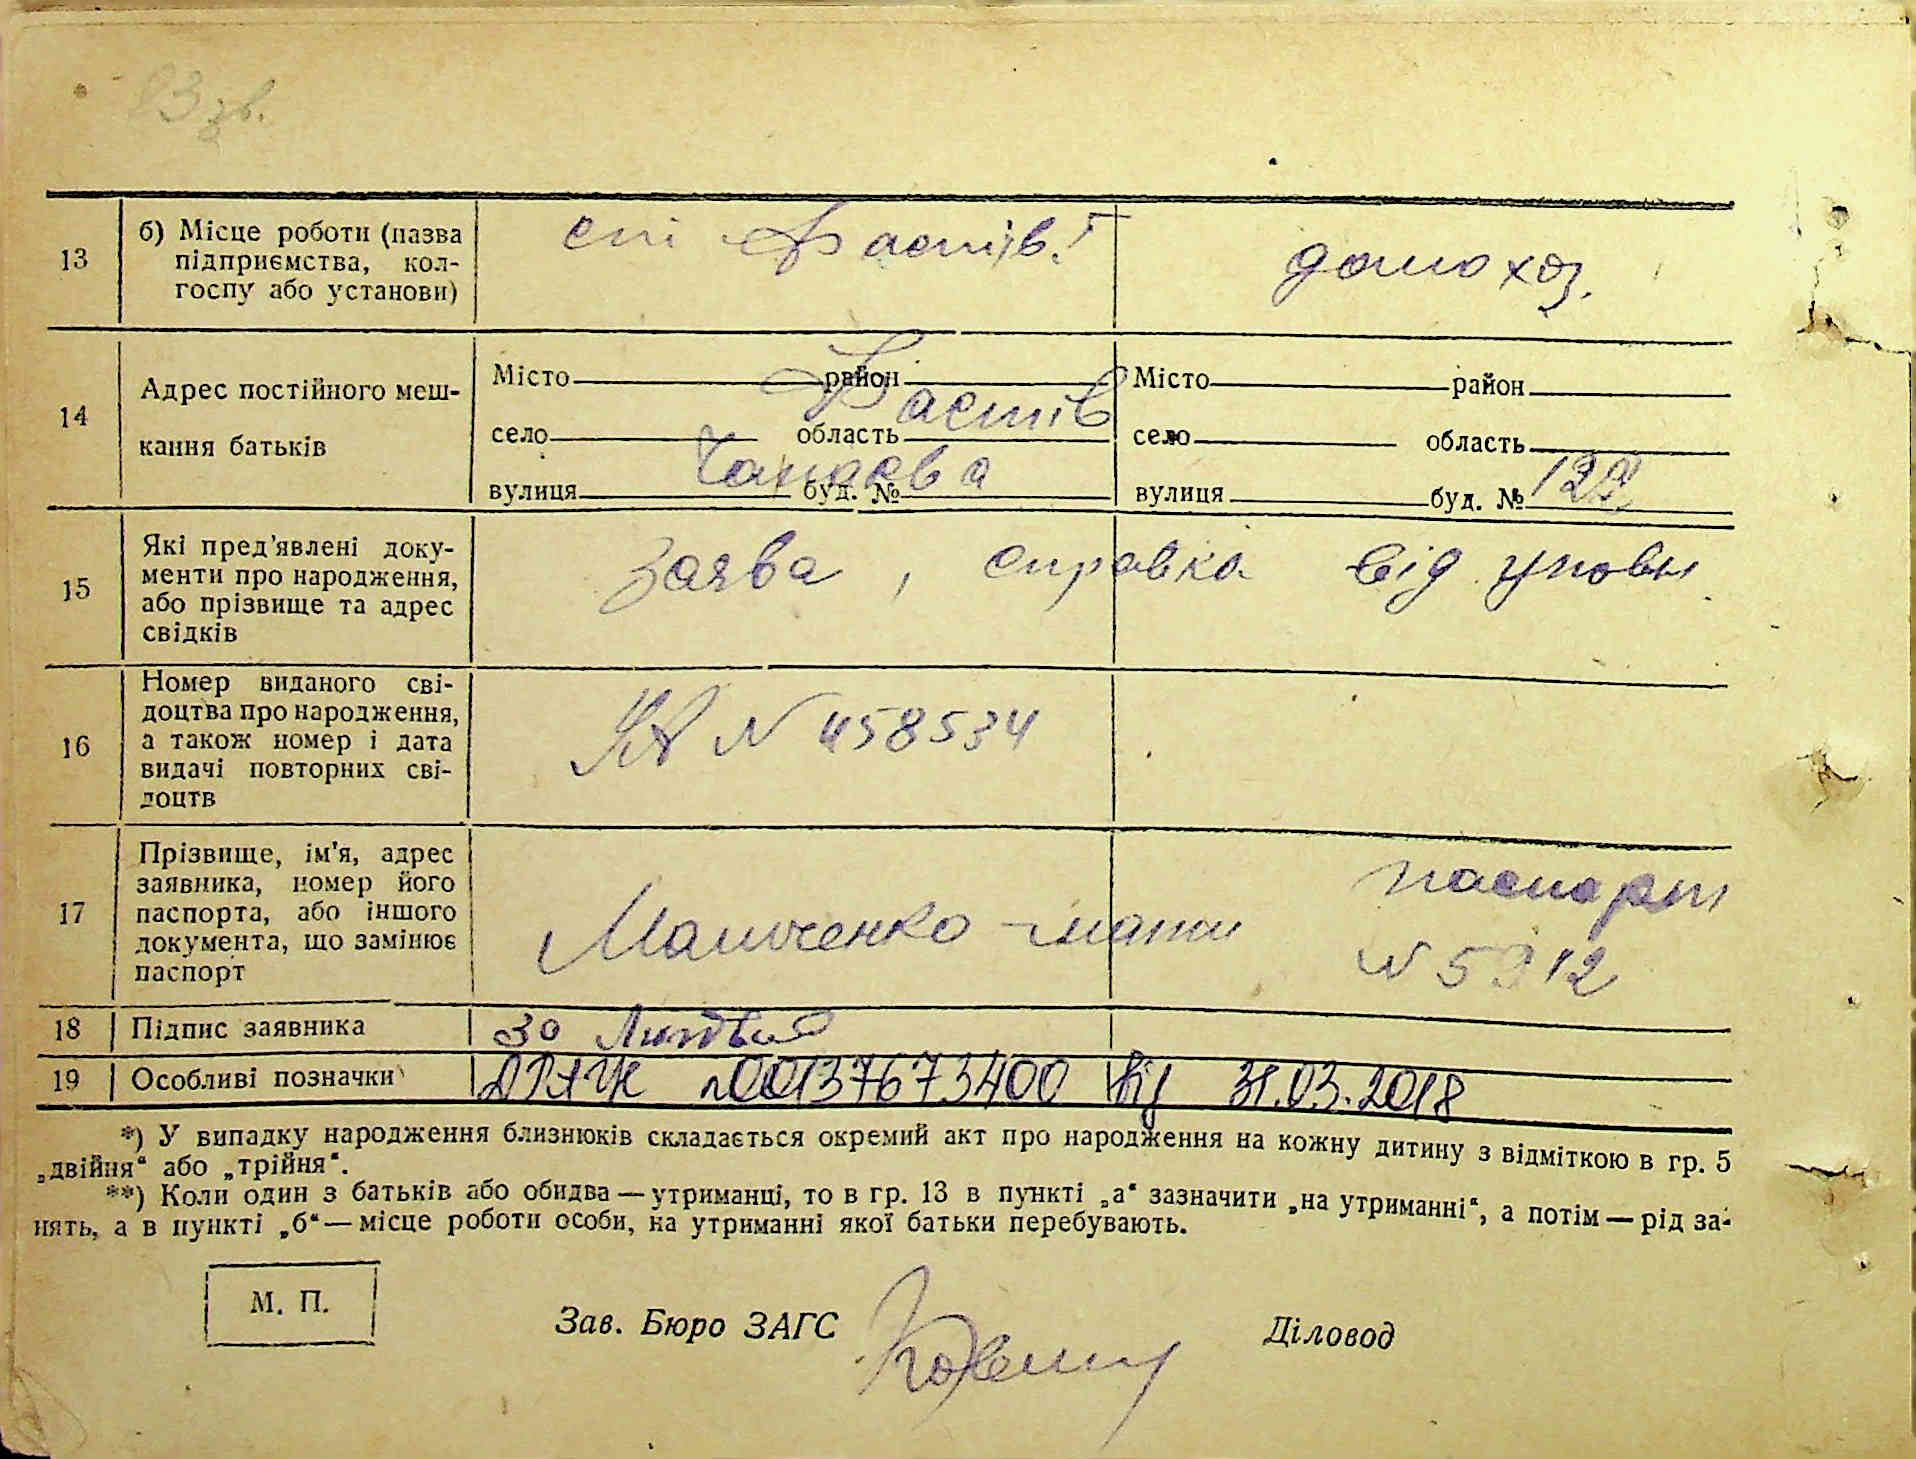 83 зв.
13
б) Місце роботи (назва
підприємства, кол-
госпу або установи)
ст Фастів. I
домохоз.
14
Адрес постійного меш-
кання батьків
Місто район Місто район
Фастів
село область село область
Чапаєва 12а
вулиця буд. № вулиця буд. №
15
Які пред'явлені доку-
менти про народження,
або прізвище та адрес
свідків
Заява, справка від
16
Номер виданого сві-
доцтва про народження,
а також номер і дата
видачі повторних сві-
доцтв
N 458534
17
Прізвище, ім'я, адрес
заявника, номер його
паспорта, або іншого
документа, що замінює
паспорт
- мати
паспорт
N 5912
18 Підпис заявника
19 Особливі позначки ДРАЦС 00137673400 від 31.03.2018
*) У випадку народження близнюків складається окремий акт про народження на кожну дитину з відміткою в гр. 5
„двійня“ або „трійня“.
**) Коли один з батьків або обидва — утриманці, то в гр. 13 в пункті „а“ зазначити „на утриманні“, а потім — рід за-
нять, а в пункті „б“ — місце роботи особи, на утриманні якої батьки перебувають.
М. П.
Зав. Бюро ЗАГС
Діловод